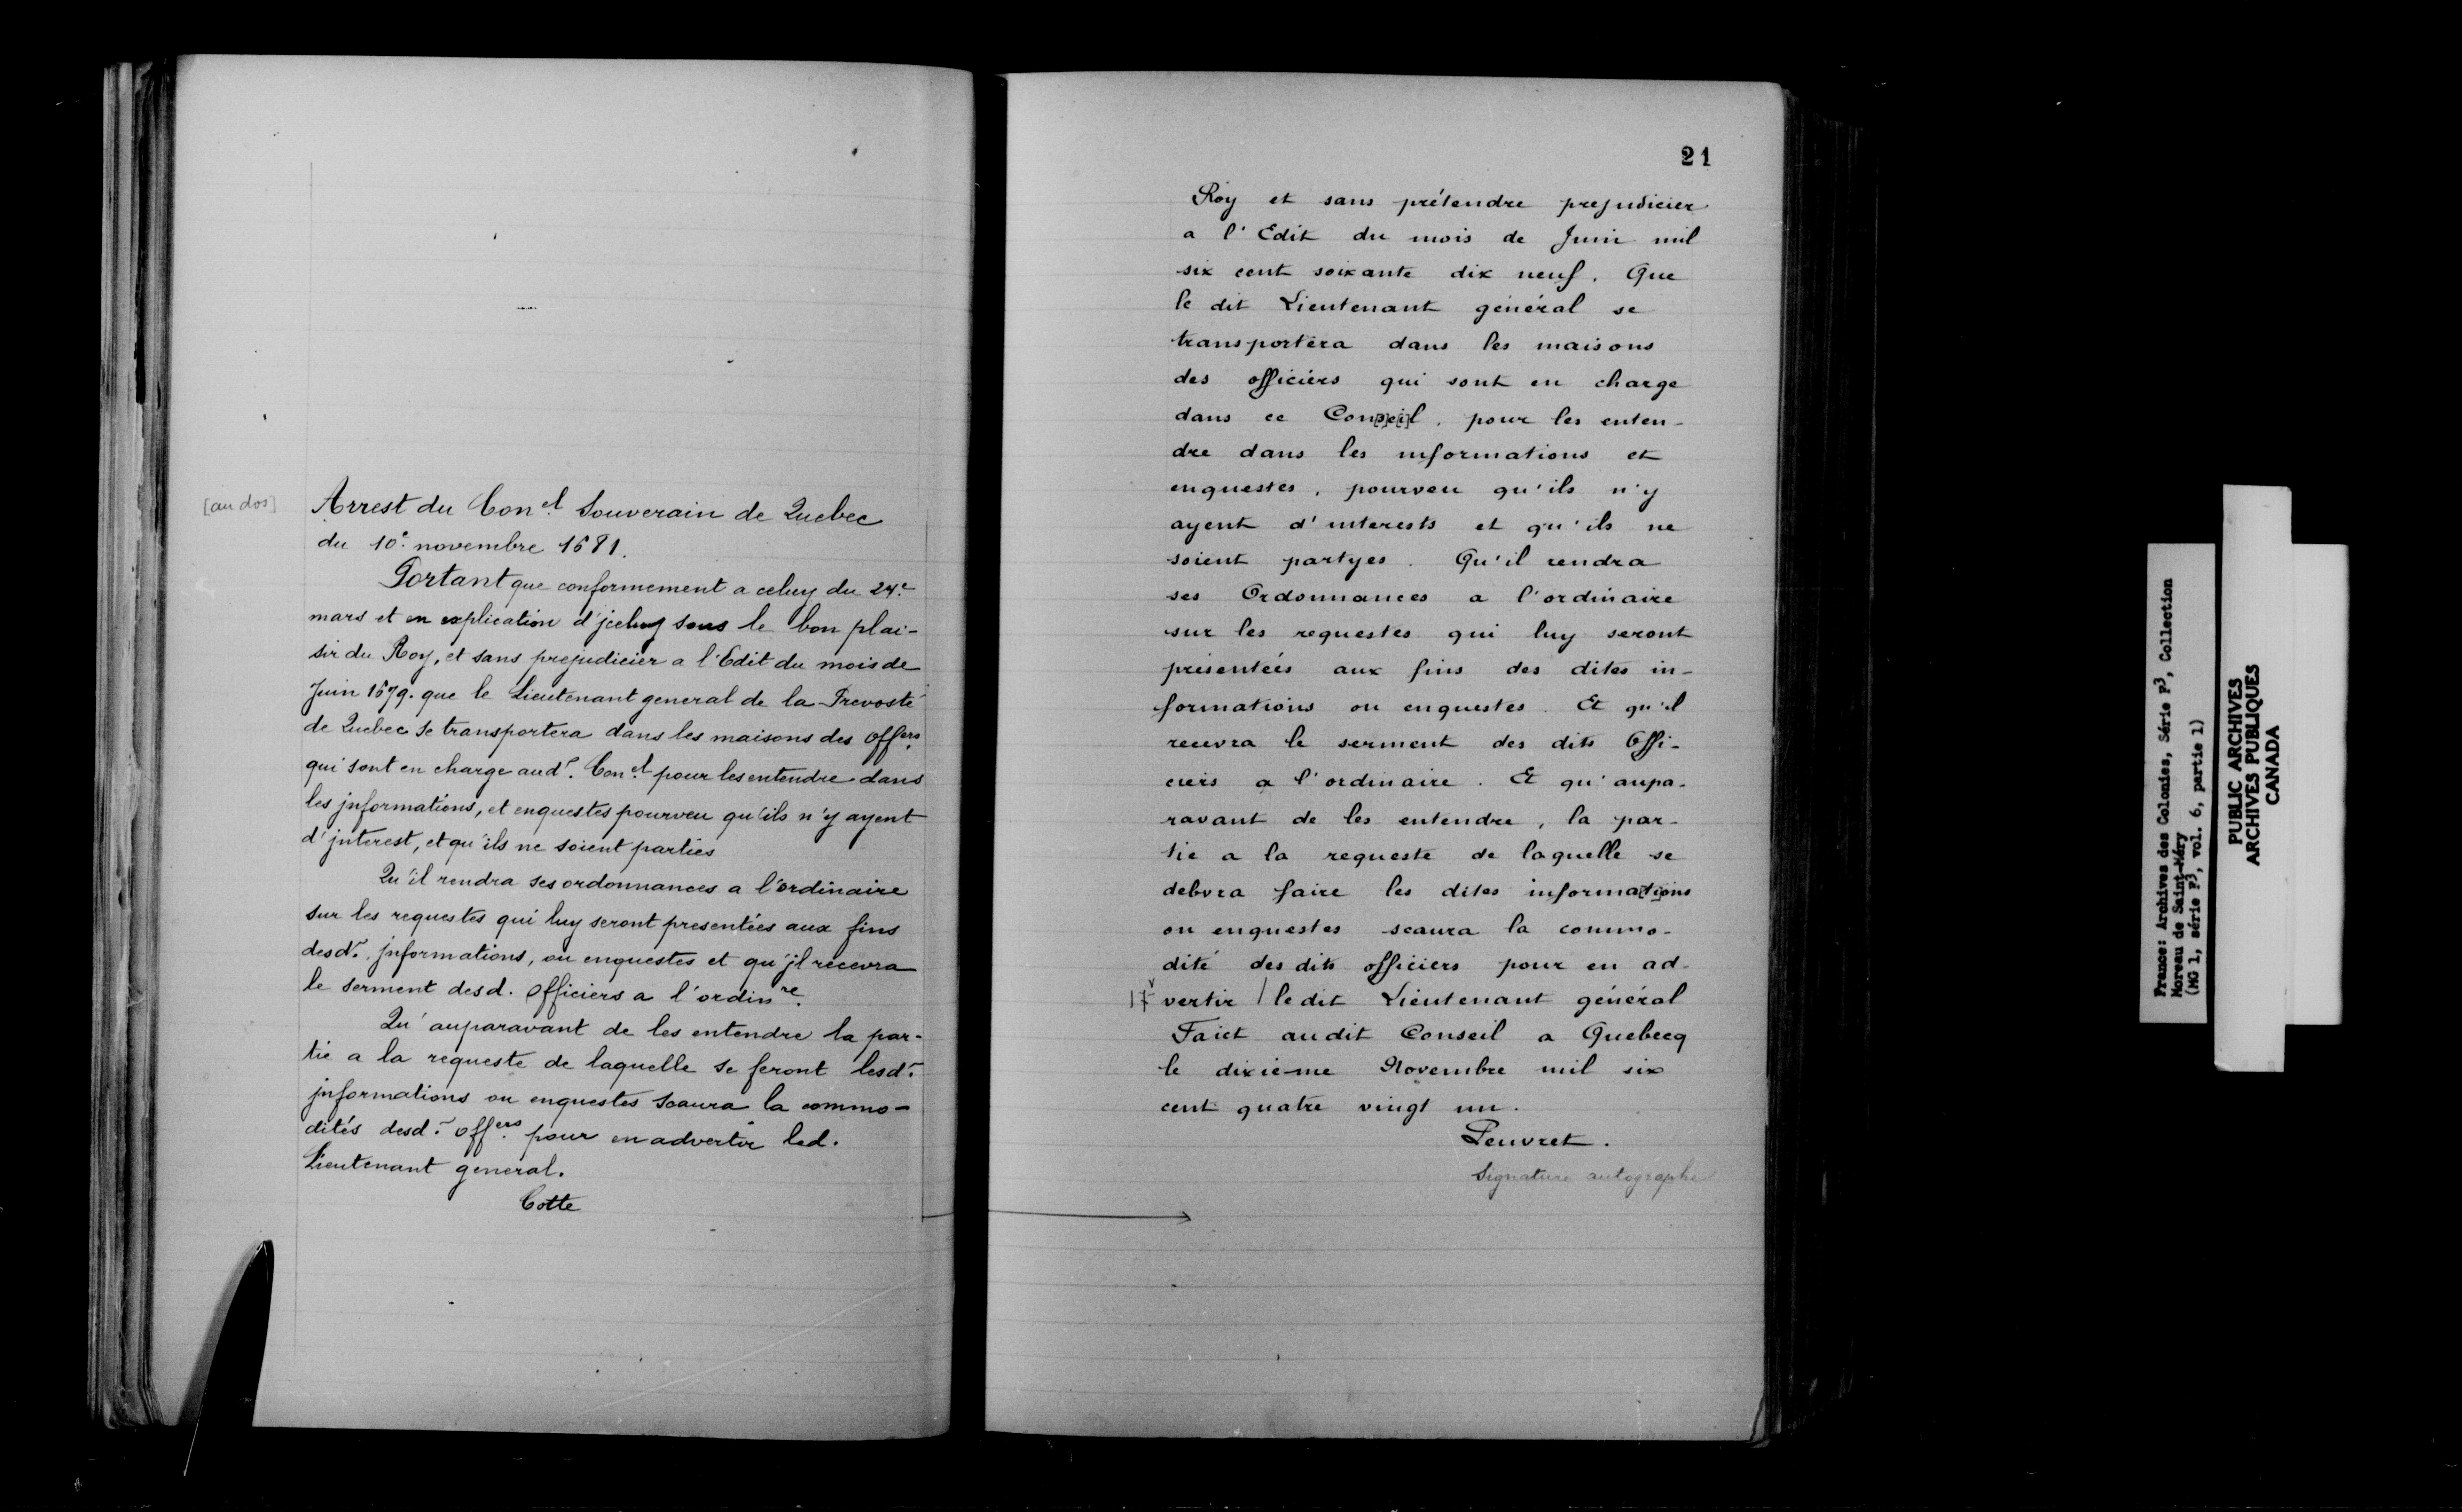 [au dos]
Arrest du Con.el Souverain de Quebec
du 10e. novembre 1681.
Portant que conformement a celuy du 24e.
mars et en explication d'jceluy sous le bon plai-
sir du Roy, et sans prejudicier a l'Edit du mois de
Juin 1679. que le Lieutenant general de la Prevosté
de Quebec se transportera dans les maisons des offers.
qui sont en charge aud. Con.el pour les entendre dans
les jnformations, et enquestes pourveu qu'ils n'y ayent
d'jnterest, et qu'ils ne soient parties
Qu'il rendra ses ordonnances a l'ordinaire
sur les requestes qui luy seront presentées aux fins
desd. jnformations, ou enquestes et qu'jl recevra
le serment desd. officiers a l'ordinre.
Qu'auparavant de les entendre la par-
tie a la requeste de laquelle se feront lesd.
jnformations ou enquestes scaura la commo-
dités desd. offers. pour en advertir led.
Lieutenant general.
Cotte
21
Roy et sans prétendre prejudicier
a l'Edit du mois de Juin mil
six cent soixante dix neuf. Que
le dit Lieutenant général se
transportera dans les maisons
des officiers qui sont en charge
dans ce Con[s]e[i]l, pour les enten-
dre dans les informations et
enquestes, pourveu qu'ils n'y
ayent d'interests et qu'ils ne
soient partyes. Qu'il rendra
ses Ordonnances a l'ordinaire
sur les requestes qui luy seront
présentées aux fins des dites in-
formations ou enquestes. Et qu'il
recevra le serment des dits Offi-
ciers a l'ordinaire. Et qu'aupa-
ravant de les entendre, la par-
tie a la requeste de laquelle se
debvra faire les dites informa[ti]ons
ou enquestes scaura la commo-
dité des dits officiers pour en ad-
vertir / le dit Lieutenant général
Faict audit Conseil a Quebecq
le dixieme Novembre mil six
cent quatre vingt un.
Peuvret.
Signature autographe
France: Archives des Colonies, Série F3, Collection
Moreau de Saint-Méry
(MG 1, série F3, vol. 6, partie 1)
PUBLIC ARCHIVES
ARCHIVES PUBLIQUES
CANADA